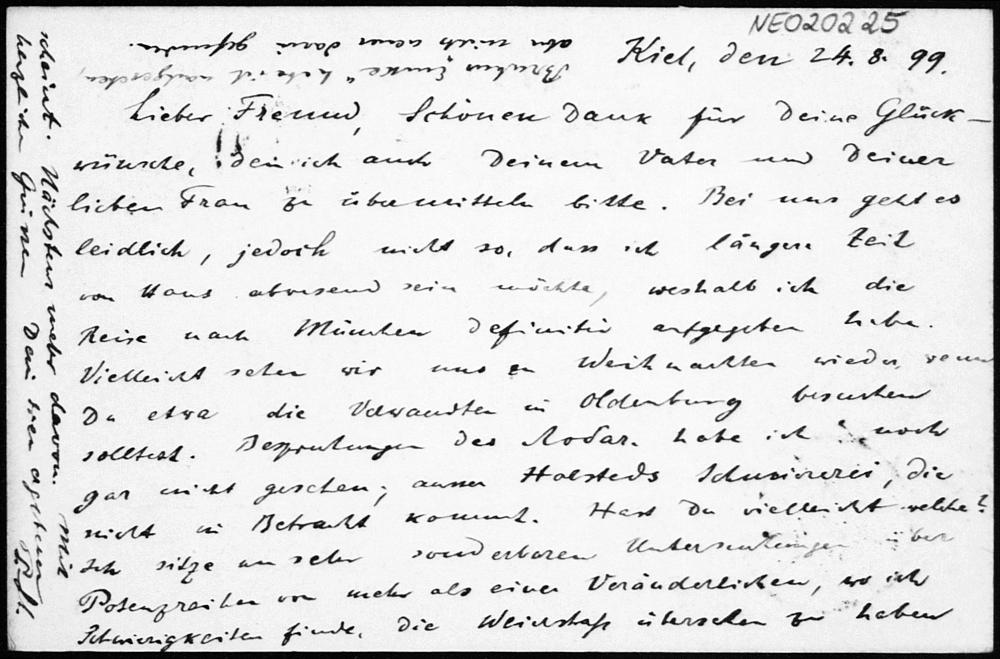 NEO20225
Kiel, den 24. 8. 99.
Lieber Freund, Schönen Dank für Deine Glück-
wünsche, den ich auch Deinem Vater und Deiner
lieben Frau zu übermitteln bitte. Bei uns geht es
leidlich, jedoch nicht so, dass ich längere Zeit
von Haus abwesend sein möchte, weshalb ich die
Reise nach München definitiv aufgegeben habe.
Vielleicht sehen wir uns zu Weihnachten wieder, wenn
Du etwa die Verwandten in Oldenburg besuchen
solltest. Besprechungen des habe ich noch
gar nicht gesehen; ausser Halsteds Schmiererei, die
nicht in Betracht kommt. Hast Du vielleicht welche?
Ich sitze an sehr sonderbaren Untersuchungen über
Potenzreihen von mehr als einer Veränderlichen, wo ich
Schwierigkeiten finde, die Weierstraß übersehen zu haben
scheint. Nächstens mehr davon. Mit
herzlichen Grüssen Dein treu ergebener
P. St.
habe ich nachgesehen,
aber nichts darin gefunden.